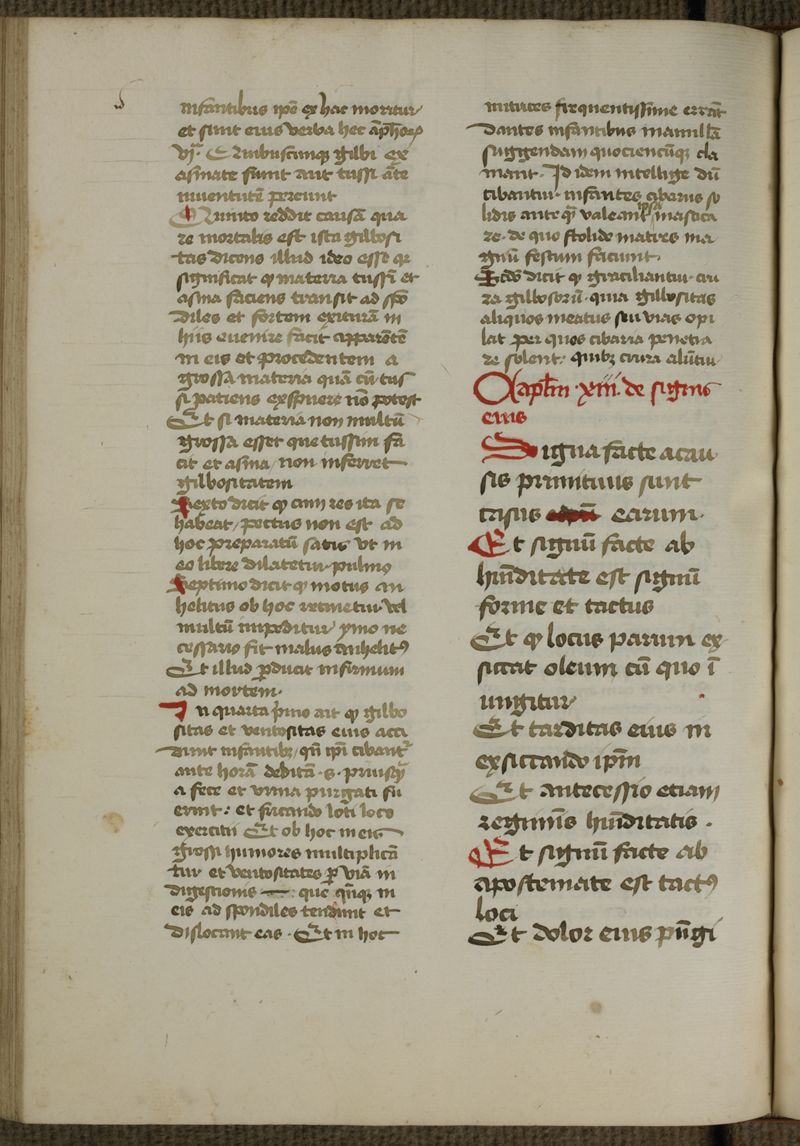 infantibus ipē ex hac moritur
et sunt eius verba hec āphorꝭ
vjᵒ. Quibuscunqꝫ gilbi ex
asmate fiunt aut tussi āte
iuuentutē pereunt
Quinto reddit causā qua
re mortalis est ista gilbosi
tas dicens illud ideo esse qꝛ
significat ꝙ materia tussī et
asma faciens transit ad spō
diles et fortem exiturā in
hiis euenire facit apparētē
in eis et procedentem a
grossa materia quā cū tus
si patiens exspuere nō potest
Et si materia non multū
grossa esset que tussim fa
cit et asma non inferret
gilbositatem
Sexto dicit ꝙ cum res ita se
habeat pectus non est ad
hoc preparatū satis vt in
eo libere dilatetur pulmo
Septimo dicit ꝙ motus an
helitus ob hoc retinetur vel
multū impeditur ymo ne
cessario fit malus anhelitꝰ
Et illud ꝓducit infirmum
ad mortem.
In quarta p̄mo ait ꝙ gilbo
sitas et ventositas eius acci
dunt infantibꝫ qn̄ ip̄i cibant᷑
ante horā debitā .s. priusꝙ̄
a fece et vrina purgati fu
erint: et secundo loti loco
exercitii Et ob hoc in eis
grossi humores multiplicā
tur et ventositates ꝓ viā in
digestionis que quoqꝫ in
eis ad spondiles tendunt et
dislocant eas . Et in hoc
nutrices frequentissime errāt
Dantes infantibus mamillā
suggendam quociencūqꝫ cla
mant. Id idem intellige dū
cibantur infantes cibariis so
lidis ante qꝫ valeant ipsa mastica
re. de quo stolide matres ma
gnū festum faciunt.
Scdō dicit ꝙ graciliantur cru
ra gilbosorū. quia gilbositas
aliquos meatus siu vias opi
lat per quos cibaria penetra
re solent. quibꝫ crura alūtur
Caplm̄ .xiii. de signis
eius
Signa facte a cau
sis primitiuis sunt
casus earum.
Et signū facte ab
hūiditate est signū
forme et tactus
Et ꝙ locus parum ex
siccat oleum cū quo ī
ungitur
Et tarditas eius in
exsiccando ip̄m
Et antecessio etiam
regiminis hūiditatis .
Et signū facte ab
apostemate est tactꝰ
loci
Et dolor eius pūgi